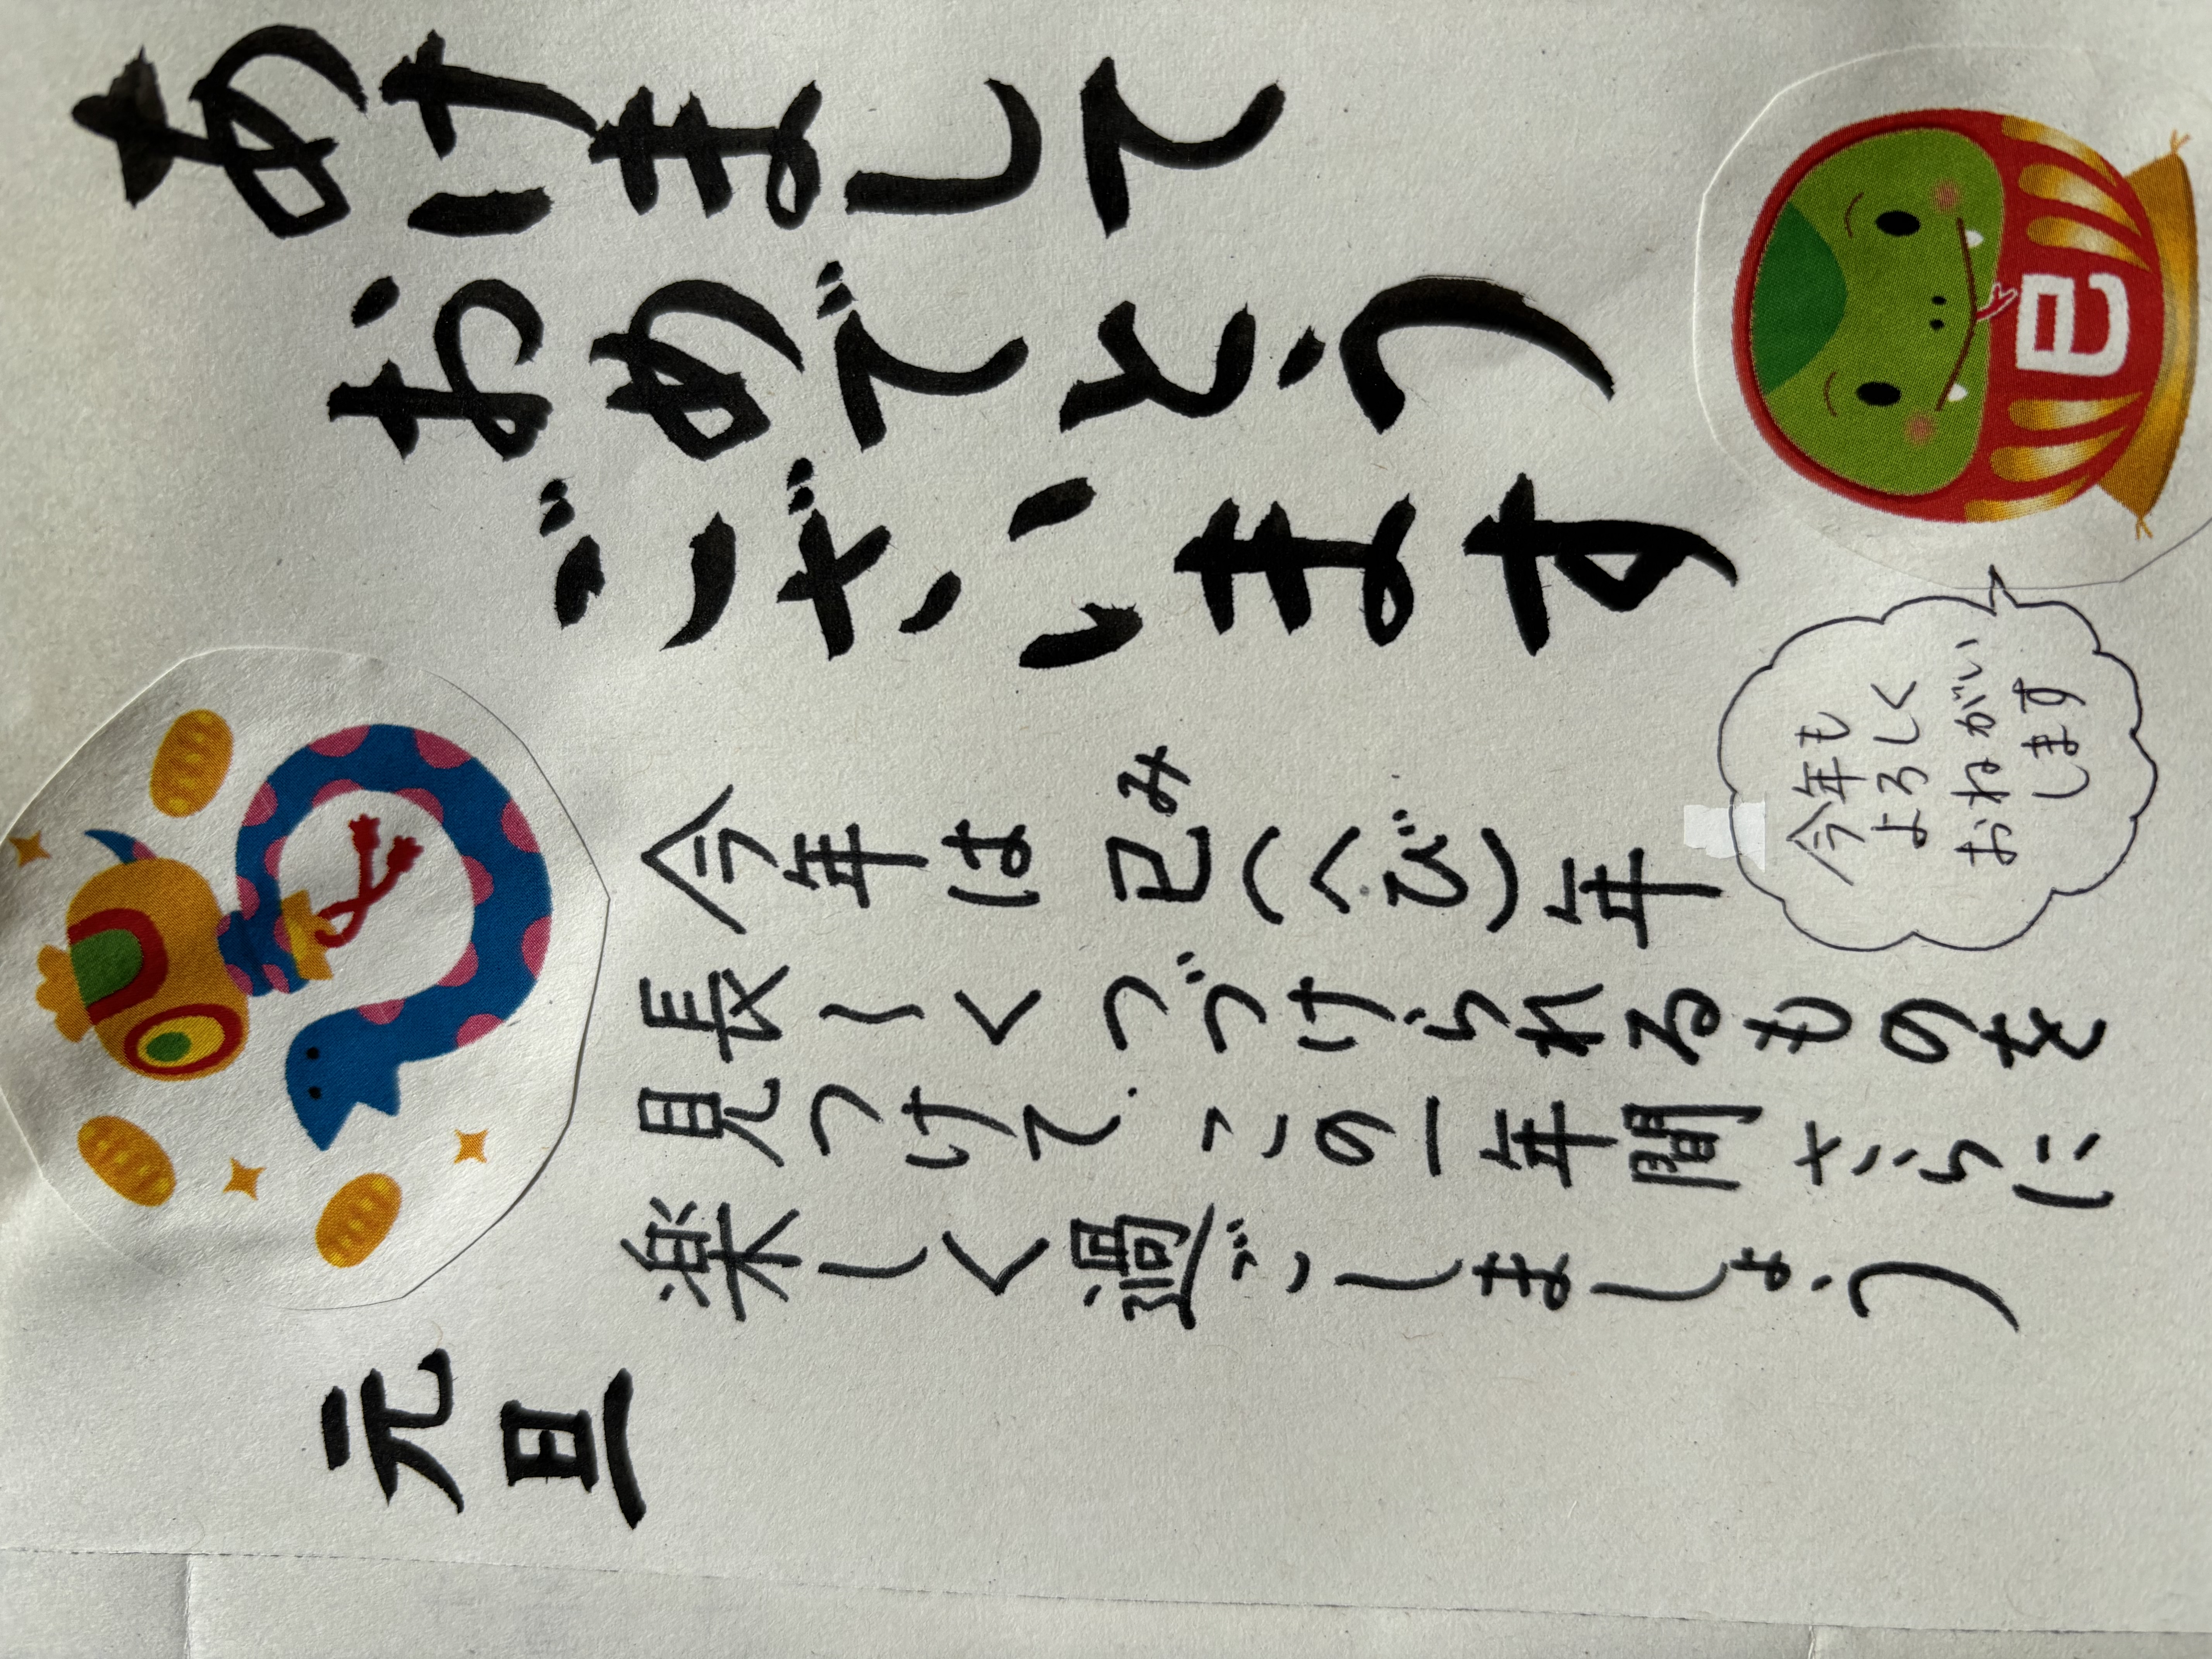 あけまして
おめでとう
ございます
今年は巳(へび)年
み
長〜くつづけられるものを
見つけて、この一年間さらに
楽しく過ごしましょう
元旦
巳
今年も
よろしく
おねがい
します